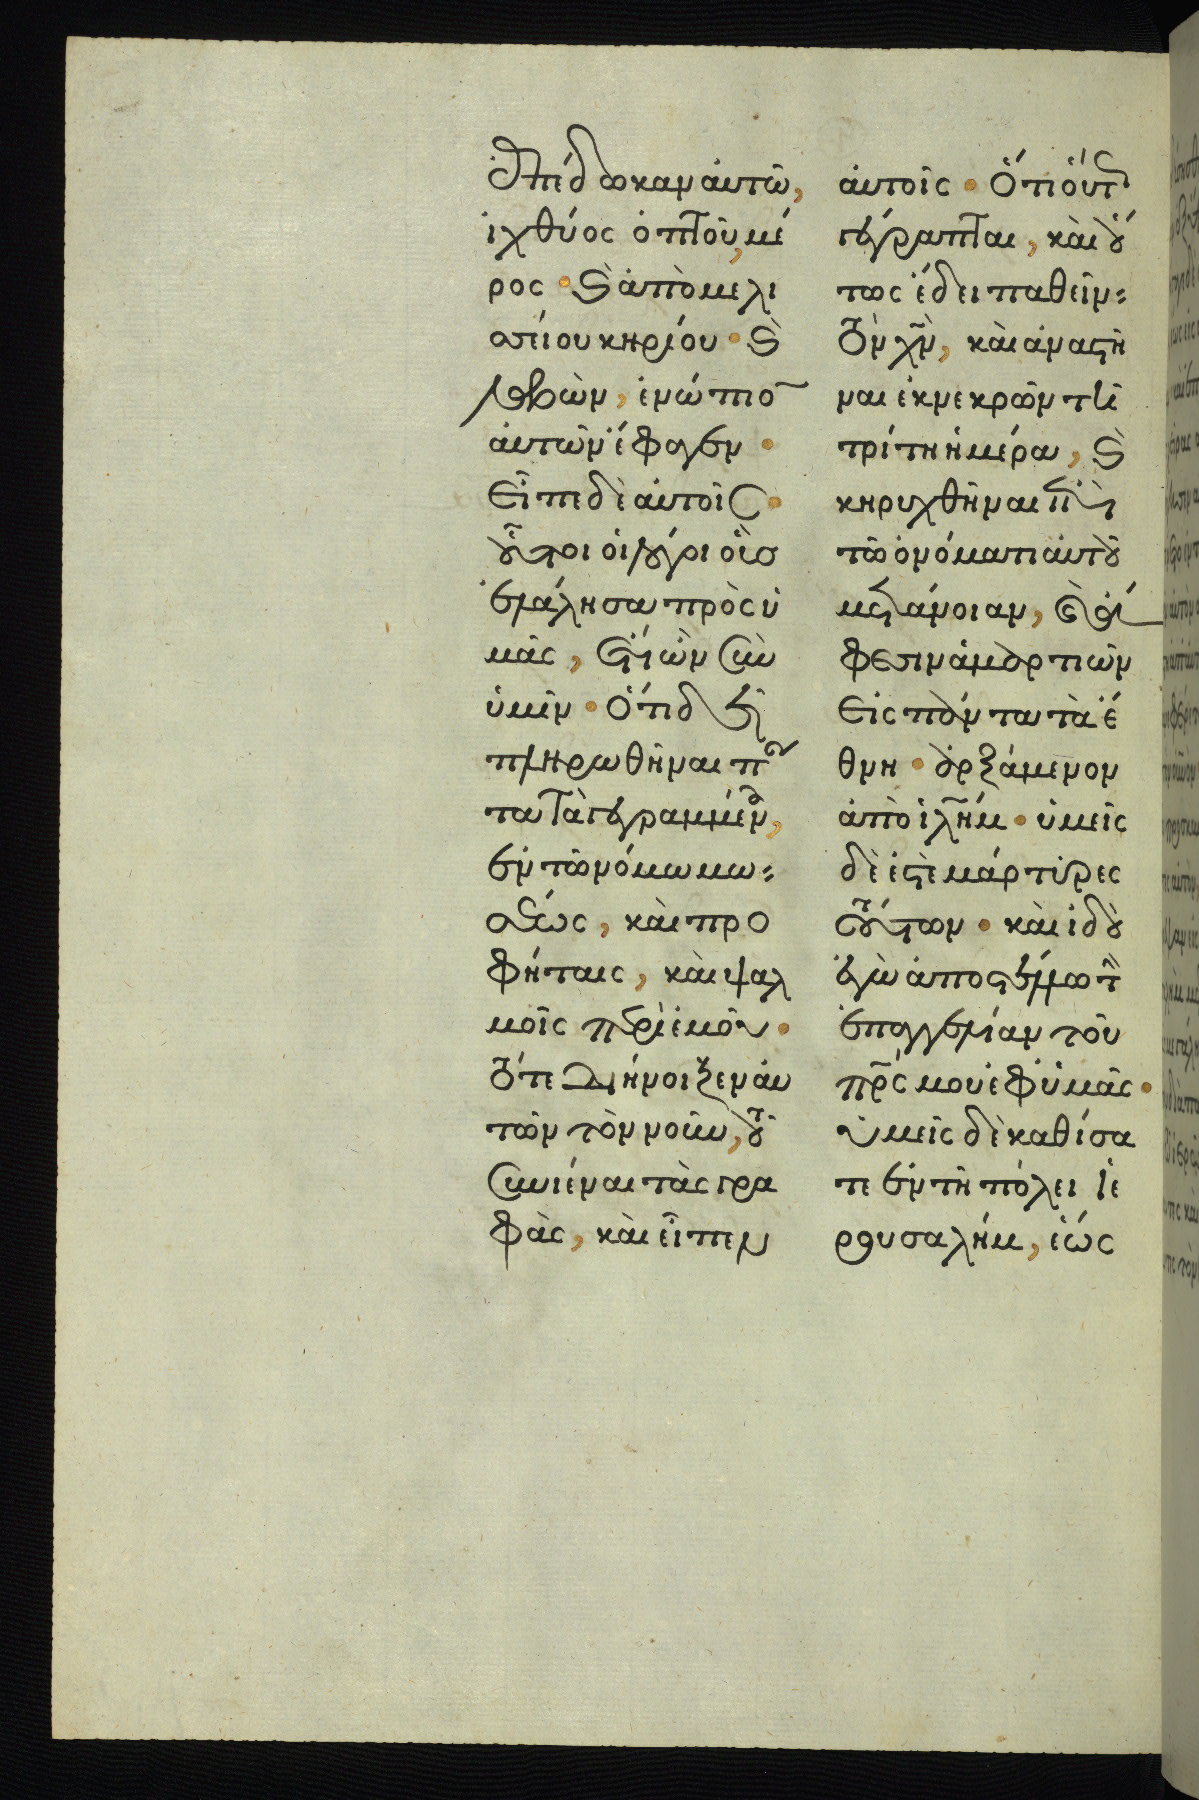 ἐπέδωκαν αὐτῶ,
ἰχθύος ὀπτοῦ, μέ
ρος · καὶ ἀπὸ μελι
σσίου κηρίου · καὶ
λαβὼν, ἐνώπιο
αὐτῶν ἔφαγεν ·
Εἶπε δὲ αὐτοῖς ·
οὗτοι οἱ λόγοι οὓσ
ἐλάλησα πρὸς ὑ
μᾶς, ἔτι ὢν σὺν
ὑμῖν · Ὅτι δεῖ
πληρωθῆναι πάντα
τὰ γεγραμμένα,
ἐν τῶ νόμω μω=
σέως, καὶ προ
φήταις, καὶ ψαλ
μοῖς περὶ ἐμοῦ ·
Τότε διήνοιξεν αὐ
τῶν τὸν νοῦν, τοῦ
συνιέναι τὰς γρα
φὰς, καὶ εἶπεν
αὐτοῖς · Ὅτι οὕτως
γέγραπται, καὶ οὕ
τως ἔδει παθεῖν=
τὸν χν, καὶ ἀναστῆ
ναι ἐκ νεκρῶν τῆ
τρίτη ἡμέρα, καὶ
κηρυχθῆναι ἐπὶ
τῶ ὀνόματι αὐτοῦ
μετάνοιαν, καὶ ἄ
φεσιν ἁμαρτιῶν
Εἰς πάντα τὰ ἔ
θνη · ἀρξάμενον
ἀπὸ ιλημ · ὑμεῖς
δέ ἐστὲ μάρτυρες
τούτων · καὶ ἰδοὺ
ἐγὼ ἀποστέλλω τὴν
ἐπαγγελίαν τοῦ
πρς μου ἐφ ὑμᾶς ·
ὑμεῖς δὲ καθίσα
τε ἐν τῆ πόλει ἱε
ρουσαλήμ, ἕως